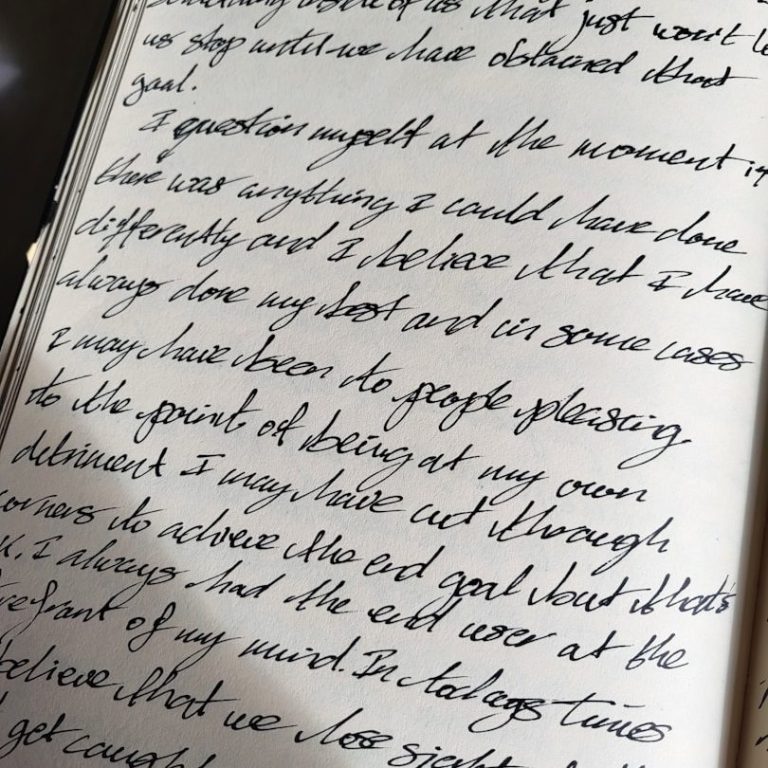 something inside of us that just won't le
us stop until we have obtained that
goal.
I question myself at the moment if
there was anything I could have done
differently and I believe that I have
always done my best and in some cases
I may have been to people pleasing
to the point of being at my own
detriment I may have cut through
corners to achieve the end goal but that's
k. I always had the end user at the
refront of my mind. In todays times
believe that we lose sight of
get caught